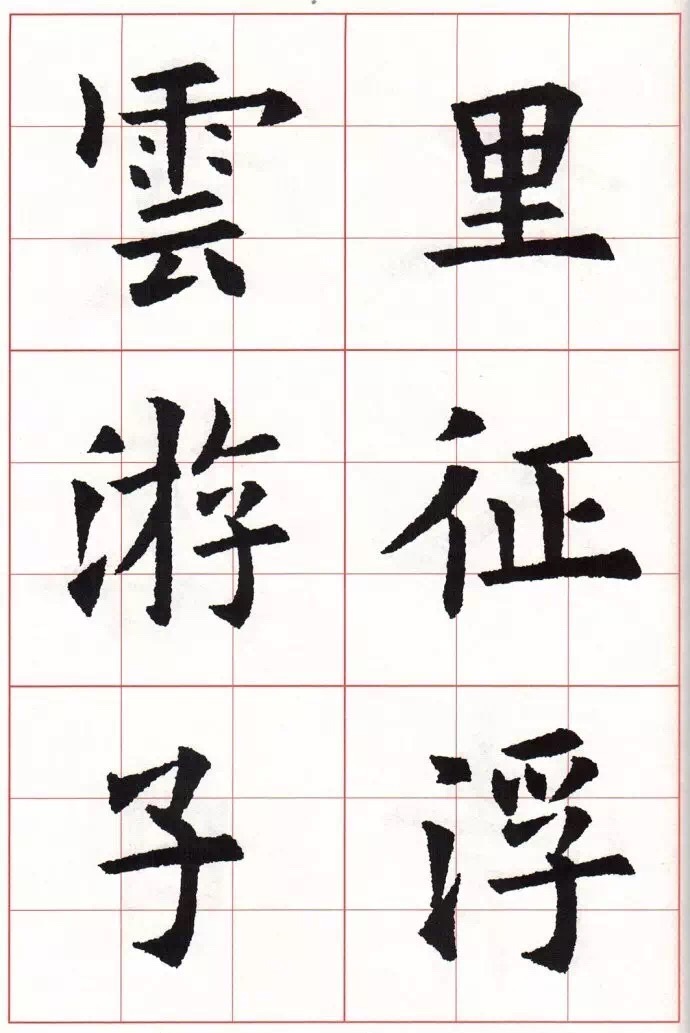 里征浮
雲游子